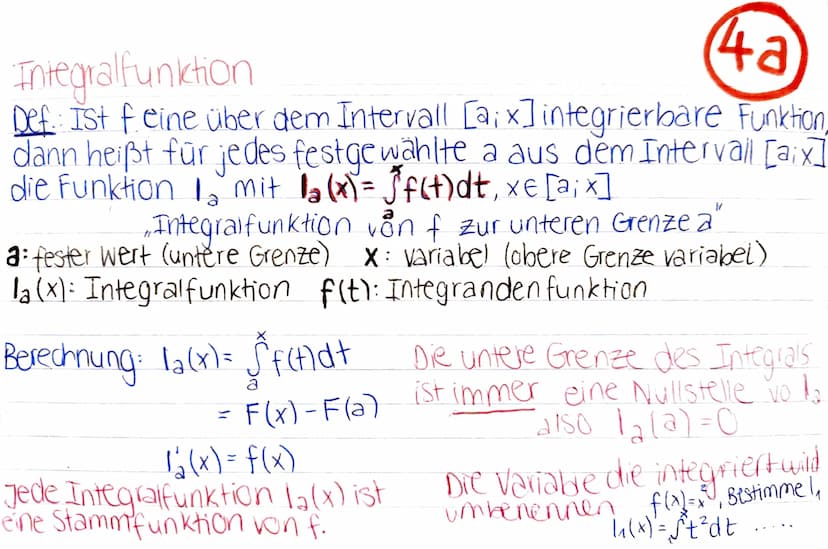 4a
Integralfunktion
Def.: Ist f eine über dem Intervall [a;x] integrierbare Funktion,
dann heißt für jedes festgewählte a aus dem Intervall [a;x]
die Funktion Iₐ mit Iₐ(x) = ∫ₐˣ f(t)dt, x∈[a;x]
„Integralfunktion von f zur unteren Grenze a"
a: fester Wert (untere Grenze) x: variabel (obere Grenze variabel)
Iₐ(x): Integralfunktion f(t): Integrandenfunktion
Berechnung: Iₐ(x) = ∫ₐˣ f(t)dt
= F(x) - F(a)
Iₐ'(x) = f(x)
Jede Integralfunktion Iₐ(x) ist
eine Stammfunktion von f.
Die untere Grenze des Integrals
ist immer eine Nullstelle vo Iₐ
also Iₐ(a) = 0
Die Variable die integriert wird
umbenennen f(x) = x², Bestimme I₁
I₁(x) = ∫ˣ t² dt .....